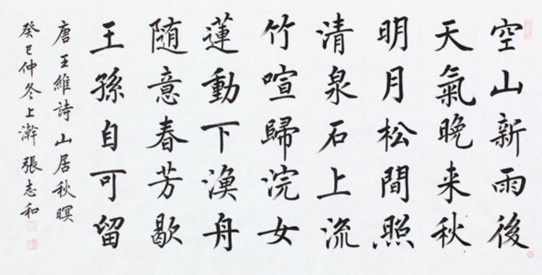 空山新雨後
天氣晚来秋
明月松間照
清泉石上流
竹喧歸浣女
蓮動下漁舟
随意春芳歇
王孫自可留
唐王維詩山居秋暝
癸巳仲冬上澣張志和